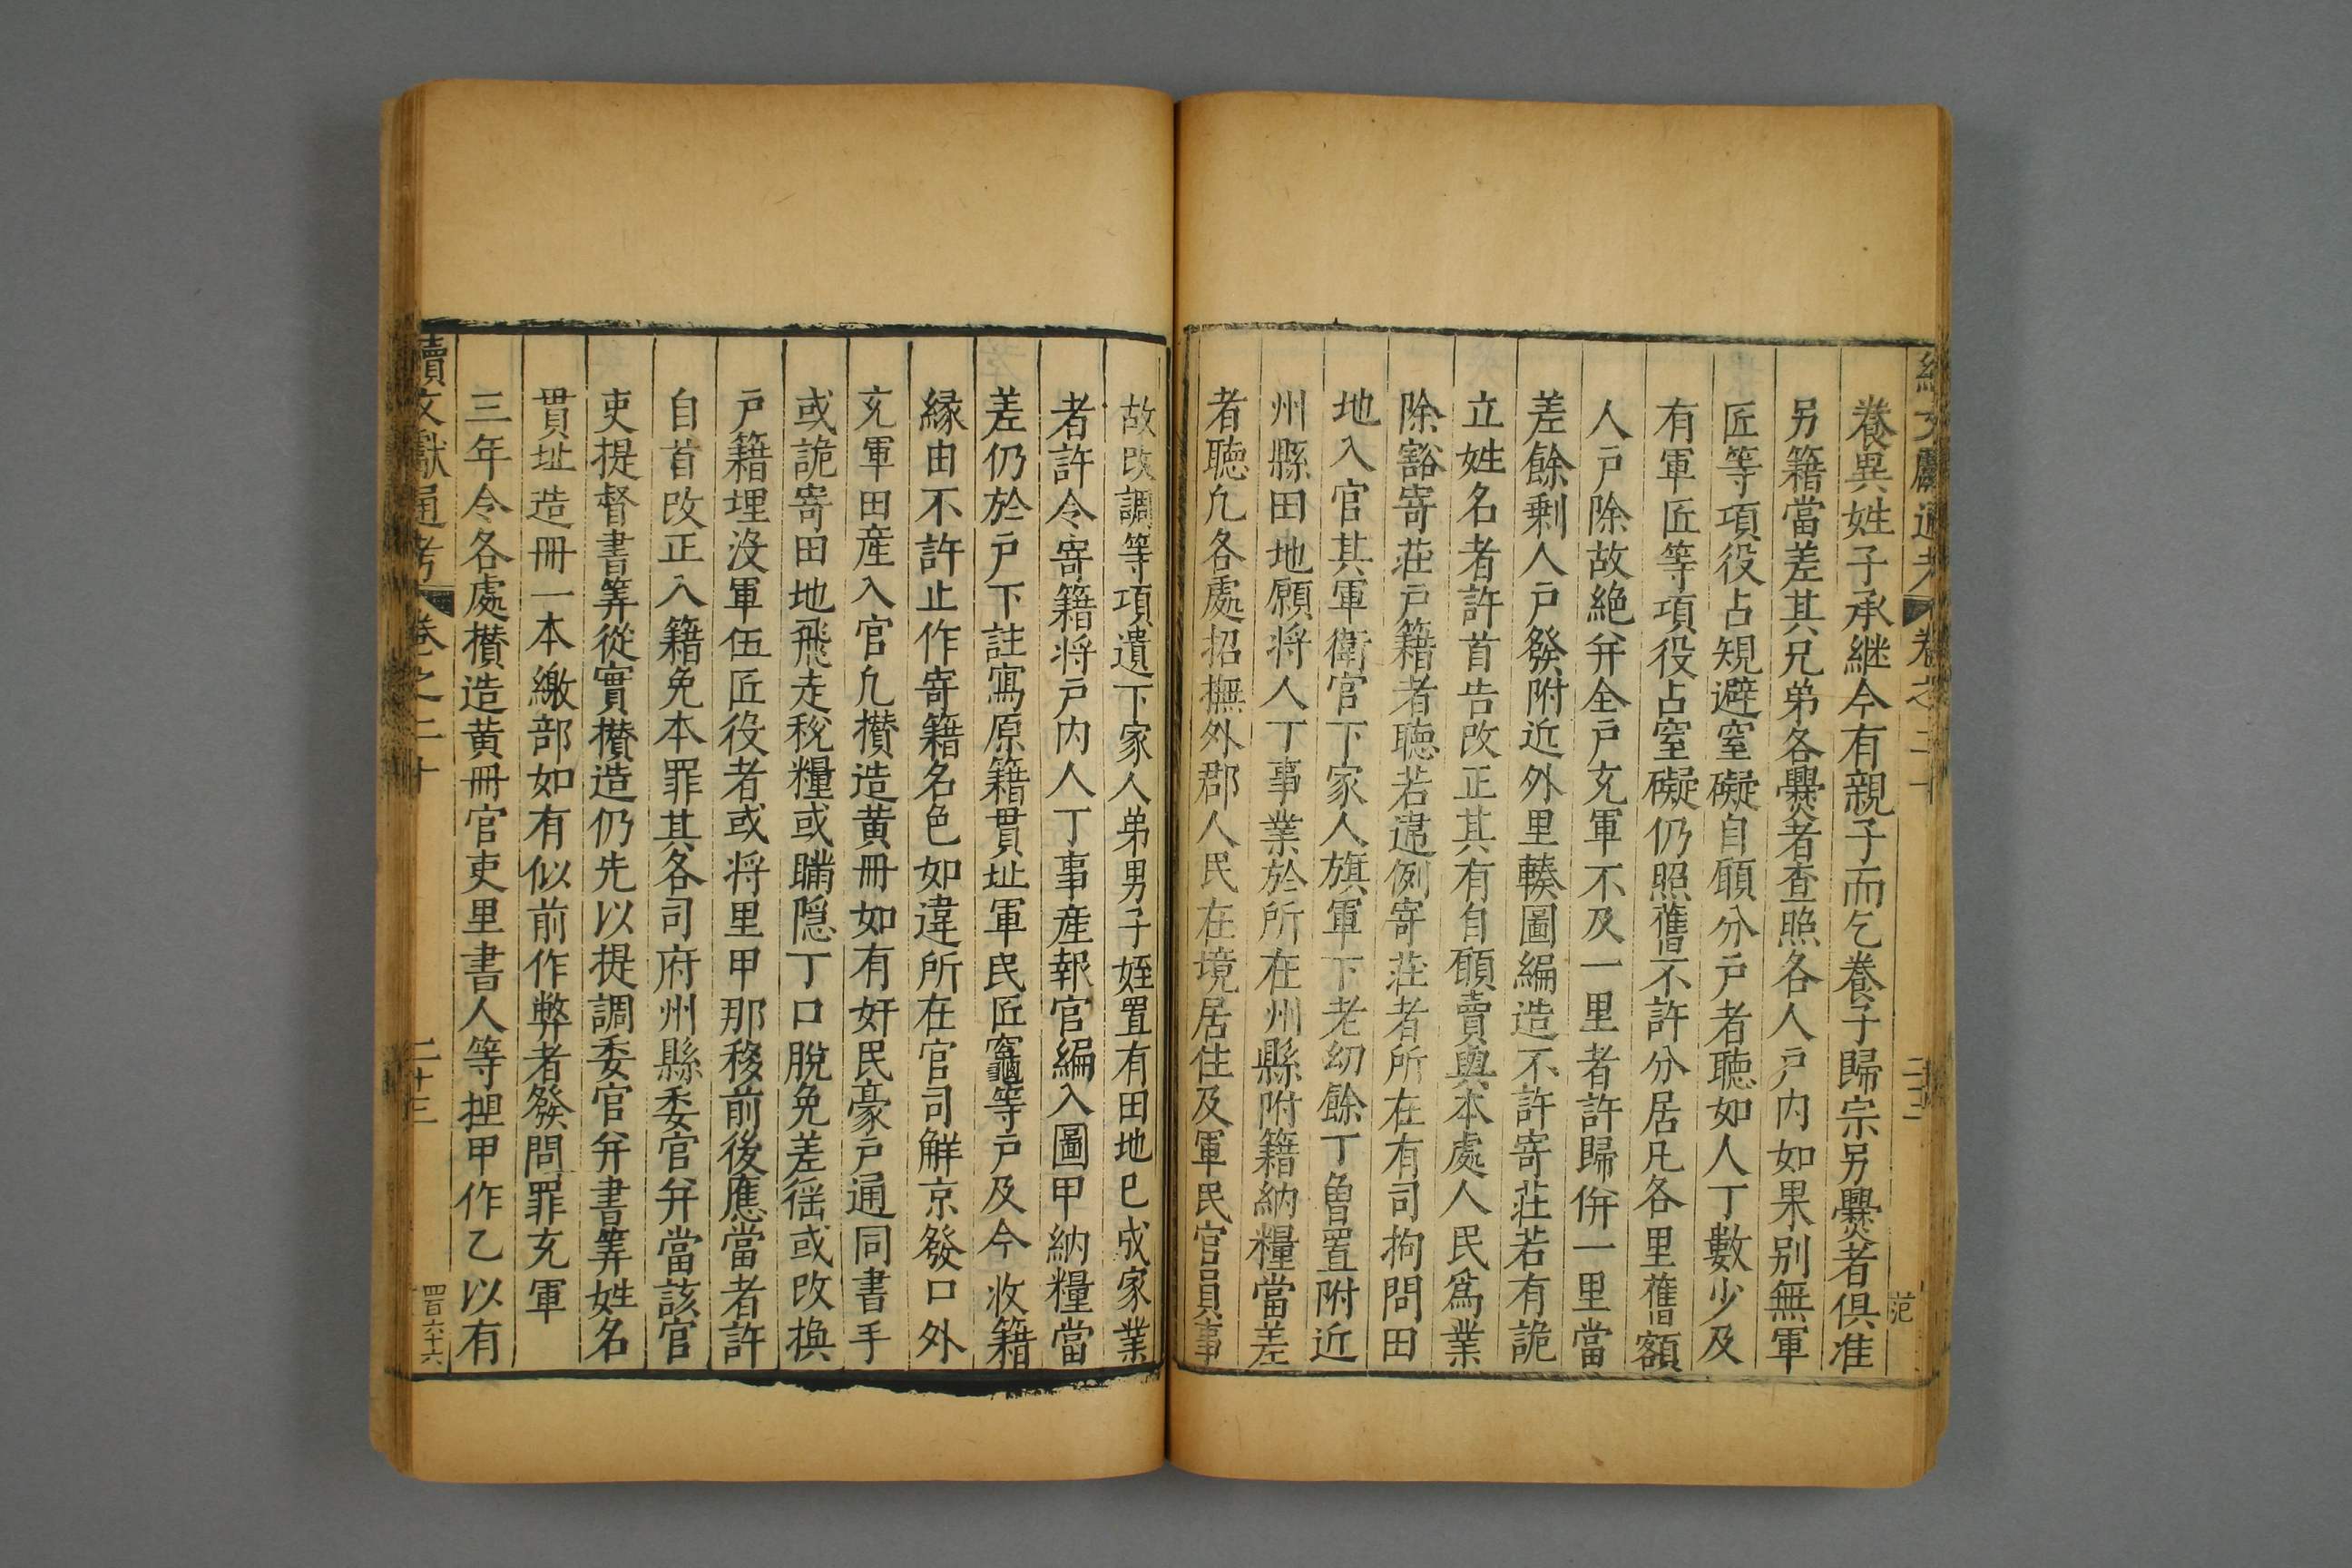 續文獻通考 卷之二十 二十二
范
養異姓子承継今有親子而乞養子歸宗另爨者俱准
另籍當差其兄弟各爨者查照各人户内如果别無軍
匠等項役占規避窒礙自願分户者聽如人丁數少及
有軍匠等項役占窒礙仍照舊不許分居凡各里舊額
人户除故絶并全户充軍不及一里者許歸併一里當
差餘剩人户發附近外里輳圖編造不許寄莊若有詭
立姓名者許首告改正其有自願賣與本處人民爲業
除豁寄莊户籍者聽若違例寄莊者所在有司拘問田
地入官其軍衛官下家人旗軍下老幼餘丁曾置附近
州縣田地願將人丁事業於所在州縣附籍納糧當差
者聽凡各處招撫外郡人民在境居住及軍民官員事
故改調等項遺下家人弟男子姪置有田地已成家業
者許令寄籍将户内人丁事産報官編入圖甲納糧當
差仍於户下註寫原籍貫址軍民匠竈等户及今收籍
縁由不許止作寄籍名色如違所在官司解京發口外
充軍田産入官凡攅造黄冊如有奸民豪户通同書手
或詭寄田地飛走税糧或瞞隱丁口脱免差徭或改換
户籍埋没軍伍匠役者或将里甲那移前後應當者許
自首改正入籍免本罪其各司府州縣委官并當該官
吏提督書筭從實攅造仍先以提調委官并書筭姓名
貫址造冊一本繳部如有似前作弊者發問罪充軍
三年令各處攅造黄冊官吏里書人等捏甲作乙以有
續文獻通考 卷之二十 二十三
四百六十六